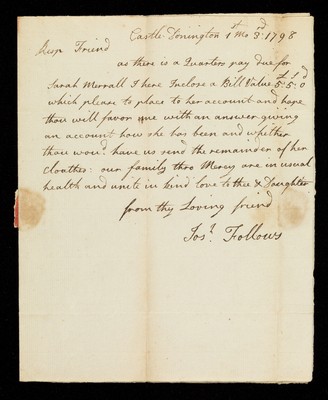 Castle Donington 1st Mo 3d 1798
Resp Friend
as there is a Quarters pay due for
Sarah Merrall I here Inclose a Bill Value £5:5s:0d
which please to place to her account and hope
thou will favor me with an answer giving
an account how she has been and whether
thou woud have us send the remainder of her
cloathes: our family thro Mercy are in usual
health and unite in kind love to thee & Daughter
from thy Loving friend
Josh. Follows